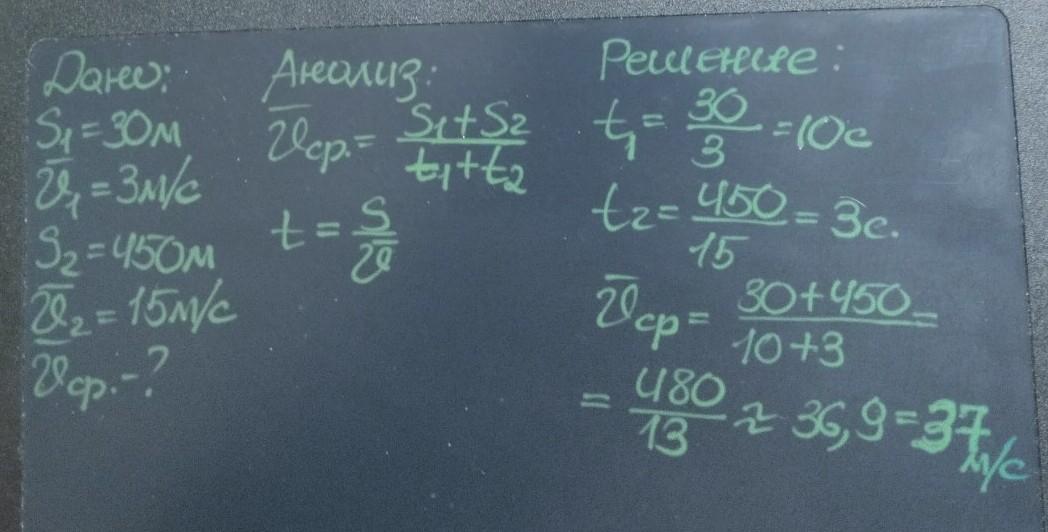 Дано:
S₁ = 30м
v̅₁ = 3м/с
S₂ = 450м
v̅₂ = 15м/с
v̅ср. - ?
Анализ:
v̅ср. = (S₁ + S₂)/(t₁ + t₂)
t = S/v̅
Решение:
t₁ = 30/3 = 10с
t₂ = 450/15 = 3с.
v̅ср = (30 + 450)/(10 + 3) =
= 480/13 ≈ 36,9 = 37 м/с